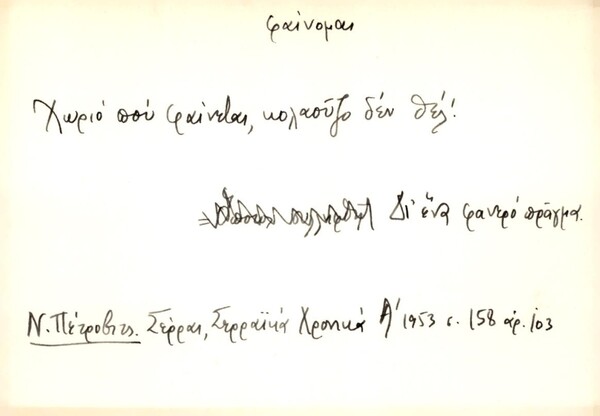 φαίνομαι
Χωριό πού φαίνεται, κολαοῦζο δέν θέλ'!
Δι' ἕνα φανερό πρᾶγμα.
Ν. Πέτροβιτς. Σέρραι, Σερραϊκά Χρονικά Α' 1953 σ. 158 ἀρ. 103